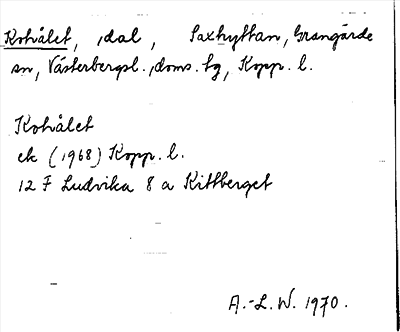 Kohålet, , dal , Saxhyttan, Grangärde
sn, Västerbergsl. , doms. tg, Kopp. l.
Kohålet
ek (1968) Kopp. l.
12 F Ludvika 8 a Kittberget
A.-L. W. 1970.